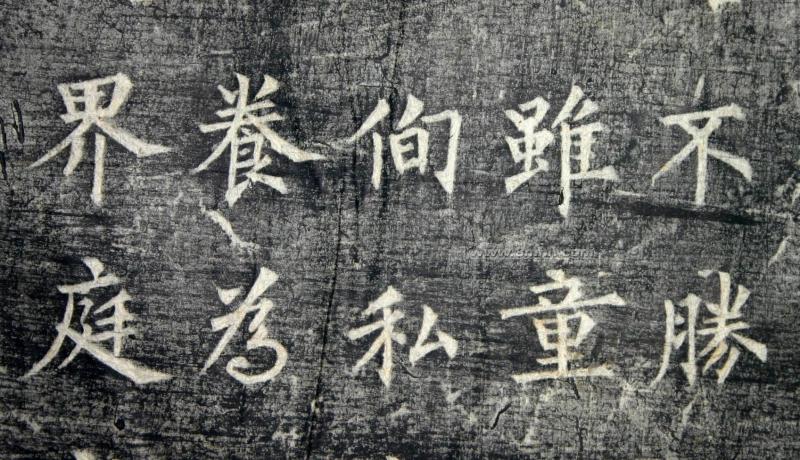 不勝
雖童
侚私
養為
界庭